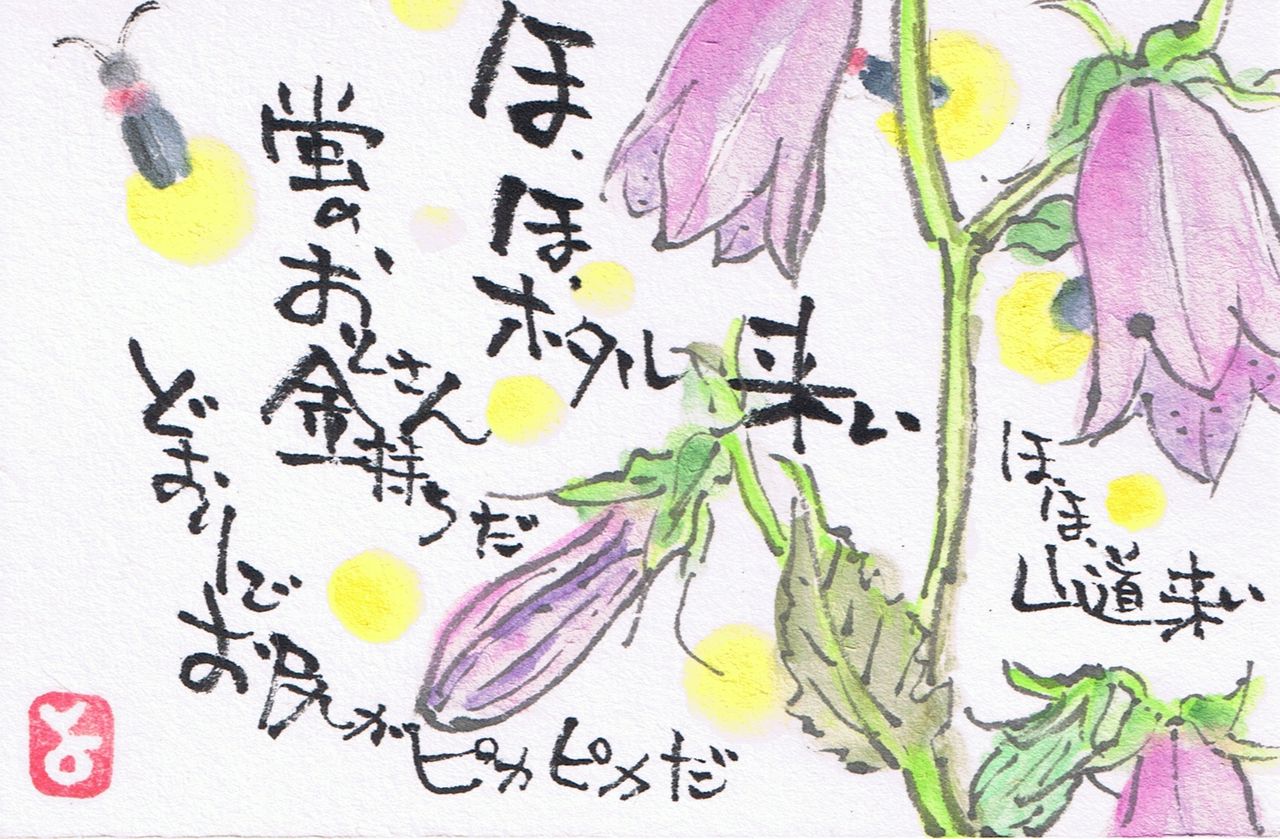 ほ、ほ、ホタル来い
蛍のおとさん金持ちだ
どおりでお尻がピカピカだ
ほ、ほ、山道来い